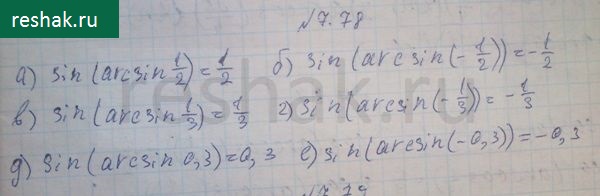 reshak.ru
№7.78
а) sin(arcsin 1/2) = 1/2 б) sin(arcsin(-1/2)) = -1/2
в) sin(arcsin 1/3) = 1/3 г) sin(arcsin(-1/3)) = -1/3
д) sin(arcsin 0,3) = 0,3 е) sin(arcsin(-0,3)) = -0,3
reshak.ru